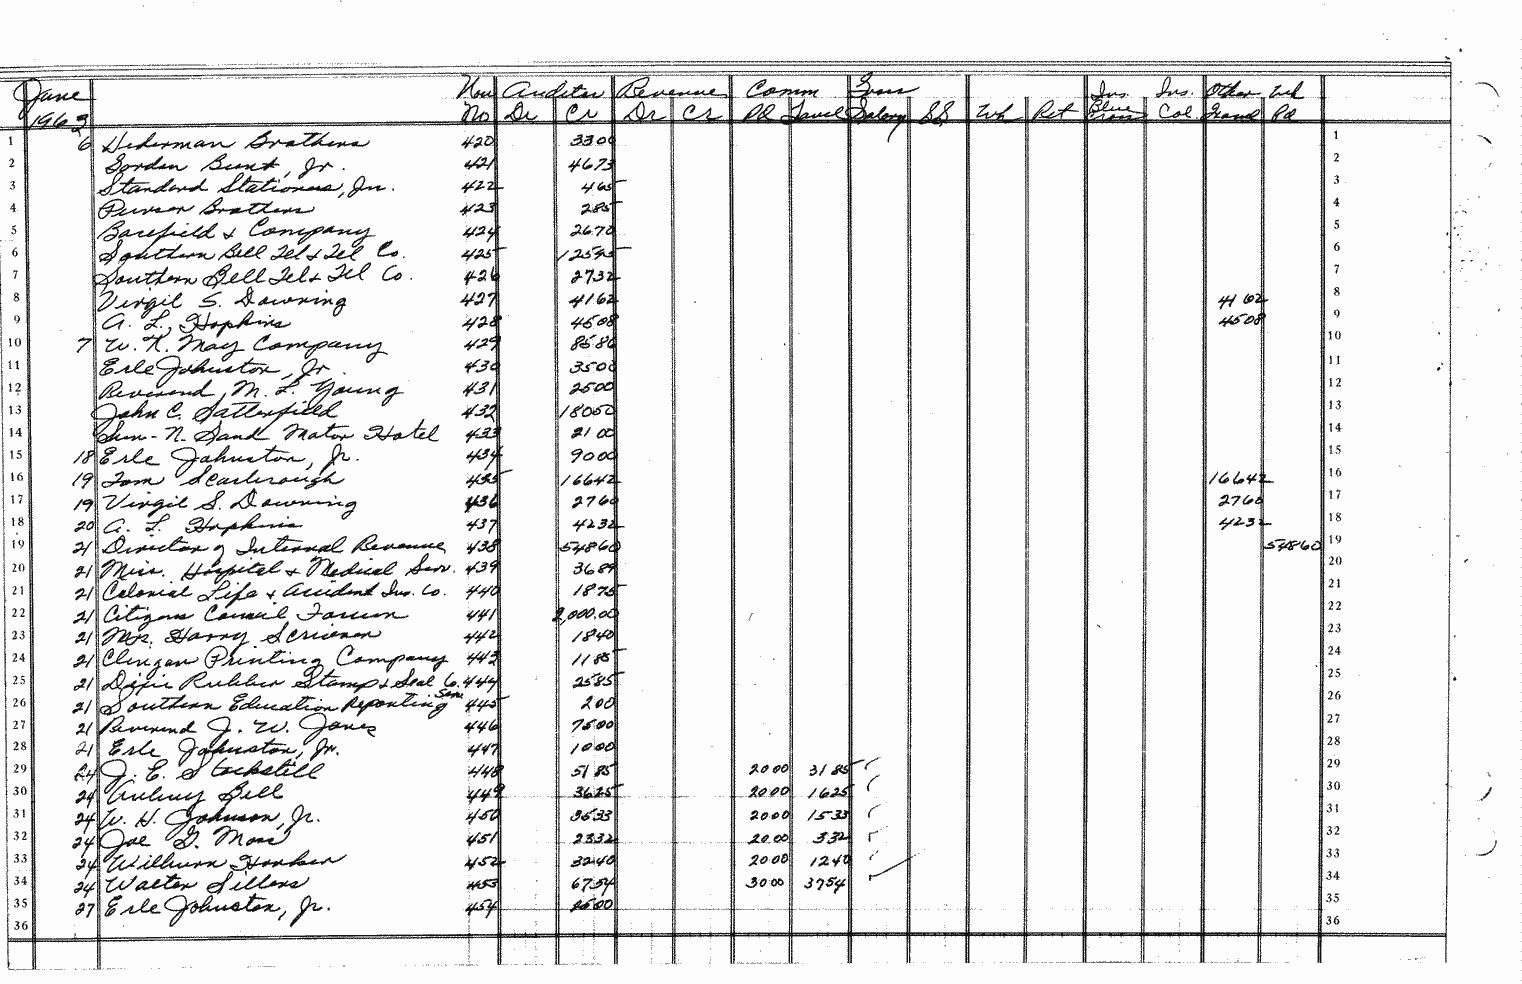 June Nou Auditor Revenue Comm Gross Ins. Ins. Other Wh
1963 No Dr Cr Dr Cr PD Travel Salary SS Wh Ret Blue Cross Col Travel Pd
1 6 Hederman Brothers 420 3300 1
2 Gordon Bunt, Jr. 421 4673 2
3 Standard Stationers, Inc. 422 465 3
4 Purser Brothers 423 285 4
5 Barefield & Company 424 2670 5
6 Southern Bell Tel & Tel Co. 425 12595 6
7 Southern Bell Tel & Tel Co. 426 2732 7
8 Virgil S. Downing 427 4162 4162 8
9 A. L. Hopkins 428 4508 4508 9
10 7 W. N. May Company 429 8586 10
11 Erle Johnston, Jr. 430 3500 11
12 Reverend M. L. Young 431 2500 12
13 John C. Satterfield 432 18050 13
14 Sun-N-Sand Motor Hotel 433 2100 14
15 18 Erle Johnston, Jr. 434 9000 15
16 19 Tom Scarbrough 435 16642 16642 16
17 19 Virgil S. Downing 436 2760 2760 17
18 20 A. L. Hopkins 437 4232 4232 18
19 21 Director of Internal Revenue 438 54860 54860 19
20 21 Miss. Hospital & Medical Serv. 439 3689 20
21 21 Colonial Life & Accident Ins. Co. 440 1875 21
22 21 Citizens Council Forum 441 2,000.00 22
23 21 Mrs. Harry Scrivener 442 1840 23
24 21 Clingan Printing Company 443 1185 24
25 21 Dixie Rubber Stamp & Seal Co. 444 2585 25
26 21 Southern Education Reporting Serv. 445 200 26
27 21 Reverend J. W. Jones 446 7500 27
28 21 Erle Johnston, Jr. 447 1000 28
29 24 J. E. Stockstill 448 5185 2000 3185 29
30 24 Aubrey Bell 449 3625 2000 1625 30
31 24 W. H. Johnson, Jr. 450 3533 2000 1533 31
32 24 Joe G. Moss 451 2332 2000 332 32
33 24 Wilburn Hooker 452 3240 2000 1240 33
34 24 Walter Sillers 453 6754 3000 3754 34
35 27 Erle Johnston, Jr. 454 2500 35
36 36